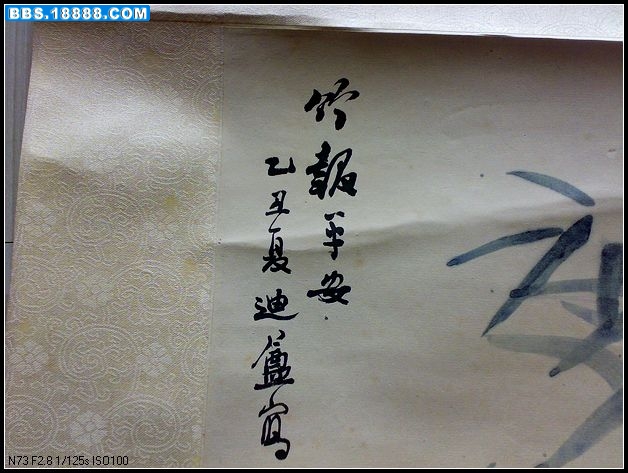 BBS.18888.COM
竹報平安
乙丑夏迪盦寫
N73 F2.8 1/125s ISO100